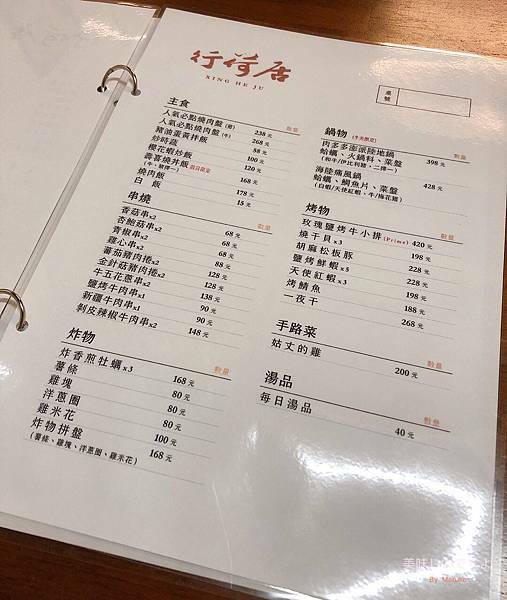 行荷居
XING HE JU
桌號
主食 數量
人氣必點燒肉盤(豬) 238元
人氣必點燒肉盤(牛) 268元
豬油蛋黃拌飯 88元
炒時蔬 100元
櫻花蝦炒飯 120元
壽喜燒丼飯
168元
燒肉飯 178元
白飯 15元
串燒 數量
香菇串x2 68元
杏鮑菇串x2 68元
青椒串x2 68元
雞心串x2 88元
蕃茄豬肉捲x2 128元
金針菇豬肉捲x2 128元
牛五花蔥串x2 138元
鹽烤牛肉串x1 90元
新疆牛肉串x1 90元
剝皮辣椒牛肉串x2 148元
炸物 數量
炸香煎牡蠣x3 168元
薯條 80元
雞塊 80元
洋蔥圈 80元
雞米花 100元
炸物拼盤 168元
(薯條、雞塊、洋蔥圈、雞米花)
鍋物(冬天限定) 數量
肉多多澎派陸地鍋 398元
蛤蠣、火鍋料、菜盤
(和牛/伊比利豬，二擇一)
海陸痛風鍋 428元
蛤蠣、鯛魚片、菜盤
(白蝦/天使紅蝦、牛/梅花豬)
烤物 數量
玫瑰鹽烤牛小排(Prime) 420元
燒干貝x3 198元
胡麻松板豚 198元
鹽烤鮮蝦x5 228元
天使紅蝦x3 228元
烤鯖魚 188元
一夜干 268元
手路菜 數量
姑丈的雞 200元
湯品 數量
每日湯品 40元
美味
By